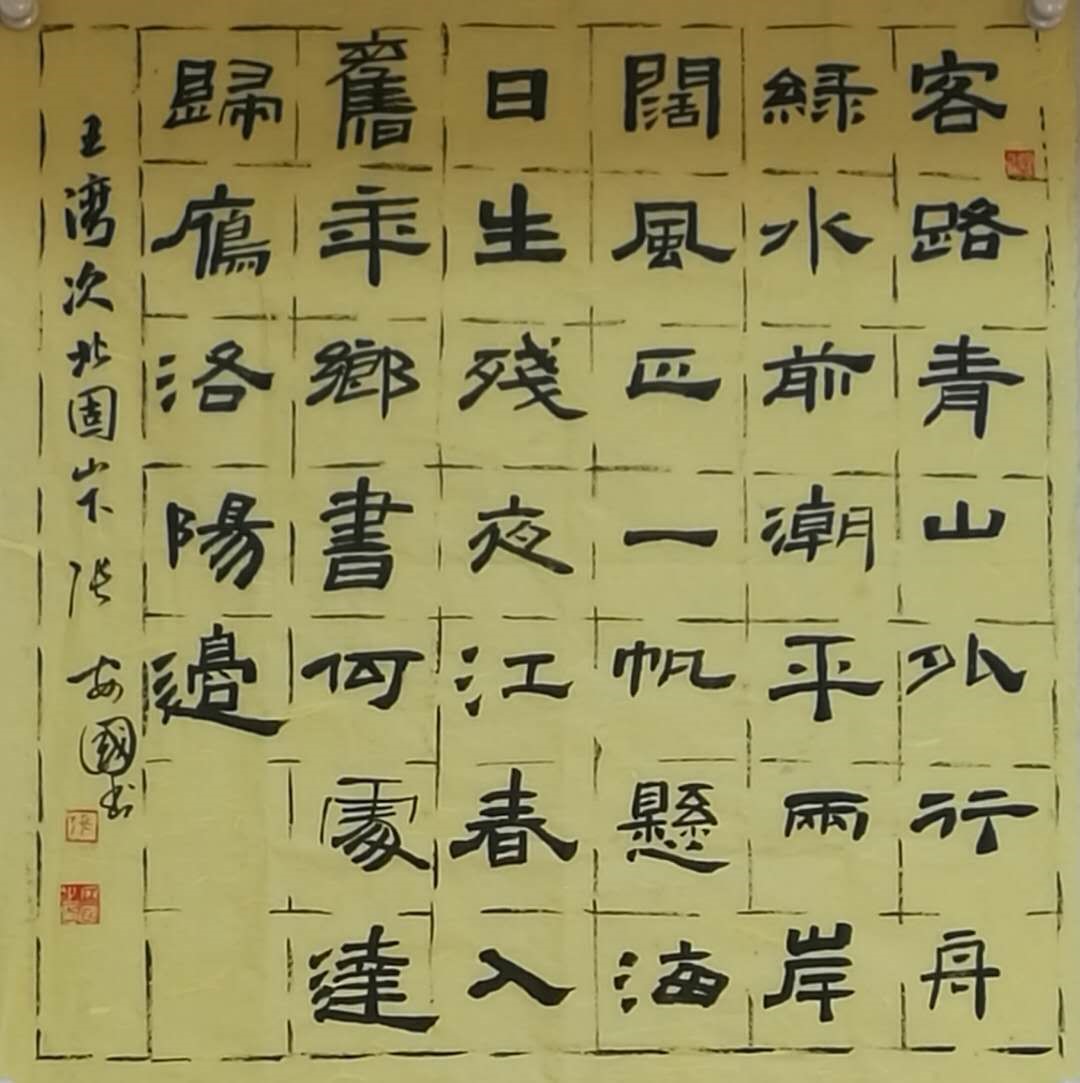 客路青山外行舟
綠水前潮平兩岸
闊風正一帆懸海
日生殘夜江春入
舊年鄉書何處達
歸鴈洛陽邊
王灣次北固山下 張安國书